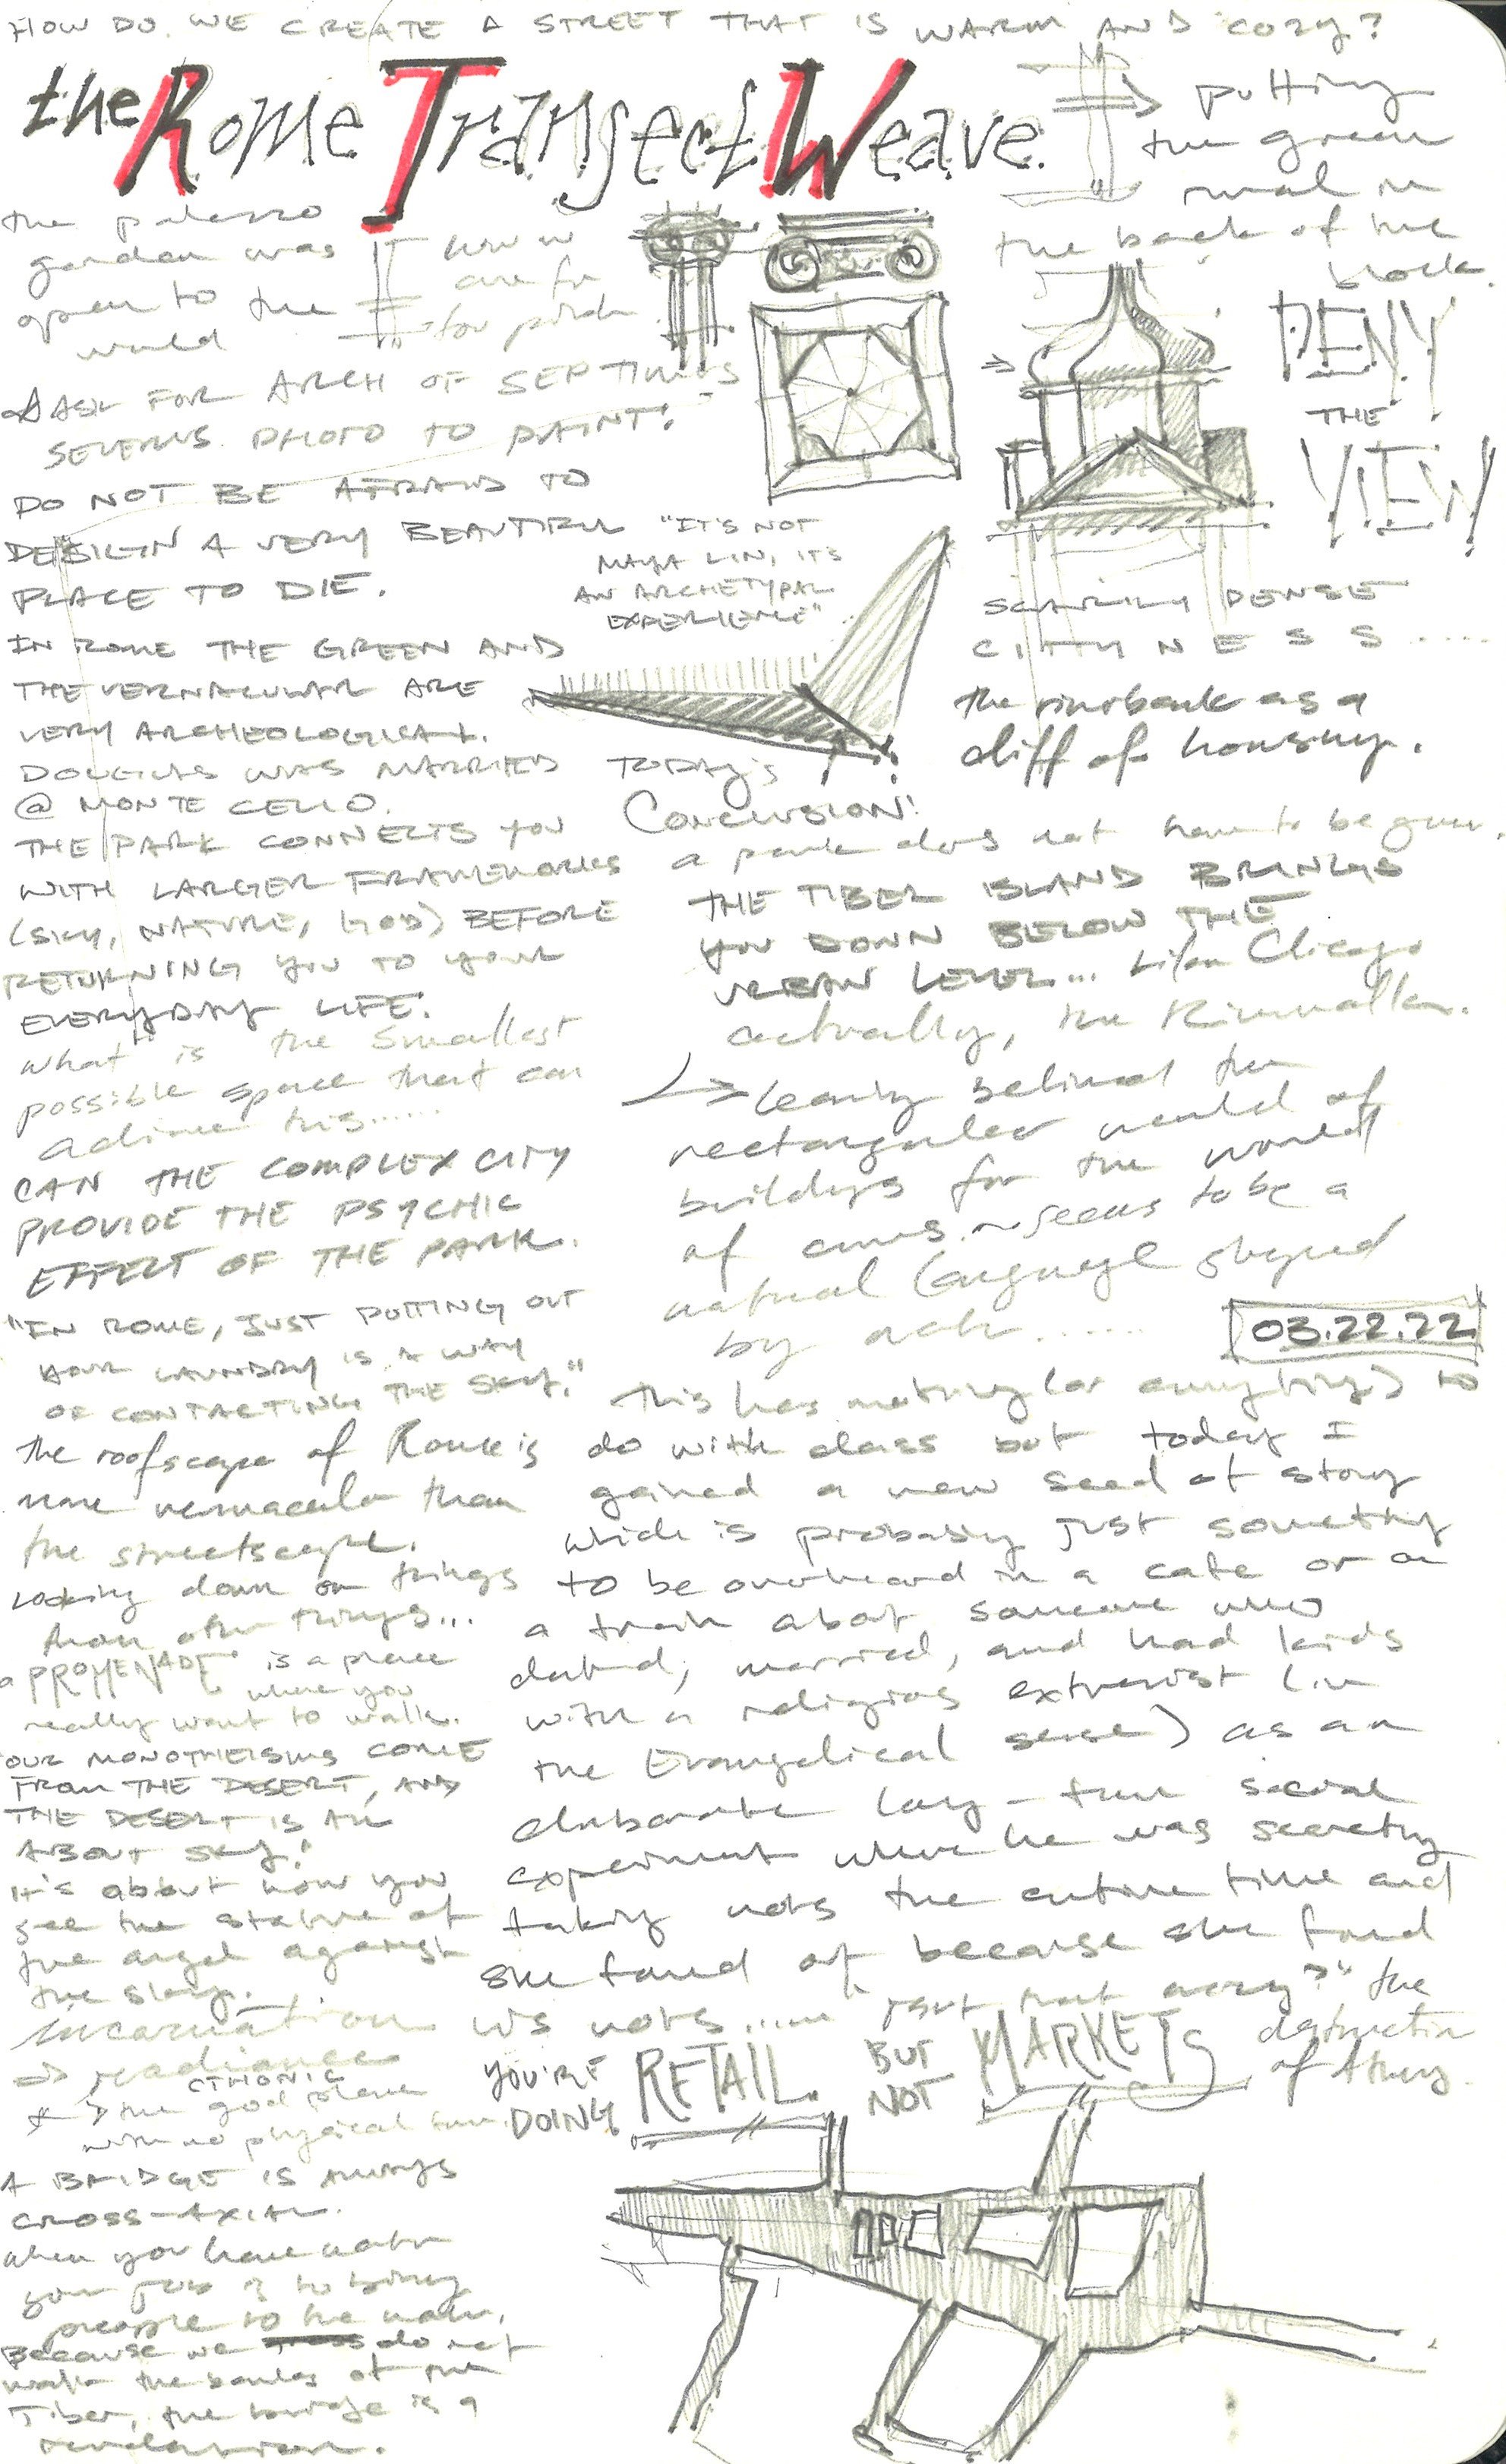 HOW DO WE CREATE A STREET THAT IS WARM AND COZY?
the Rome Transect Weave.
putting
the green
rural in
the back of the
block.
the palazzo
garden was
open to the
world
how in
are for
for
ASK FOR ARCH OF SEPTIMUS
SEVERUS PHOTO TO PAINT!
DO NOT BE AFRAID TO
DESIGN A VERY BEAUTIFUL
PLACE TO DIE.
"IT'S NOT
MAYA LIN, IT'S
AN ARCHETYPAL
EXPERIENCE"
DENY
THE
VIEW
SCARILY DENSE
CITYNESS.....
the riverbank as a
cliff of housing.
IN ROME THE GREEN AND
THE VERNACULAR ARE
VERY ARCHEOLOGICAL.
DOUGLAS WAS MARRIED
@ MONTE CELIO.
THE PARK CONNECTS YOU
WITH LARGER FRAMEWORKS
(SKY, NATURE, GOD) BEFORE
RETURNING YOU TO YOUR
EVERYDAY LIFE.
what is the smallest
possible space that can
achieve this......
CAN THE COMPLEX CITY
PROVIDE THE PSYCHIC
EFFECT OF THE PARK.
"IN ROME, JUST PUTTING OUT
YOUR LAUNDRY IS A WAY
OF CONTACTING THE SKY."
the roofscape of Rome is
more vernacular than
the streetscape.
Looking down on things
than other things...
a "PROMENADE" is a place
where you
really want to walk.
OUR MONOTHEISMS COME
FROM THE DESERT, AND
THE DESERT IS ALL
ABOUT SKY!
It's about how you
see the statue of
the angel against
the sky.
incarnation
⇒ radiance
CTHONIC
the god place
with no physical
A BRIDGE IS ALWAYS
CROSS-AXIAL.
when you have water
your job is to bring
people to the water.
Because we do not
walk the banks of the
Tiber, the bridge is a
revelation.
TODAY'S
CONCLUSION:
a park does not have to be green.
THE TIBER ISLAND BRINGS
YOU DOWN BELOW THE
URBAN LEVEL... Like Chicago
actually, the Riverwalk.
→ leaving behind the
rectangular world of
buildings for the world
of curves ~ seems to be a
natural language shaped
by
03.22.22
This has nothing (or anything) to
do with class but today I
gained a new seed of story
which is probably just something
to be overheard in a cafe or on
a train about someone who
dated, married, and had kids
with a religious extremist (in
the Evangelical sense) as an
elaborate long-term social
experiment where he was secretly
taking notes the entire time and
she found out because she found
his notes..... "isn't that crazy?" the
destruction
of
YOU'RE
DOING RETAIL. BUT
NOT MARKETS